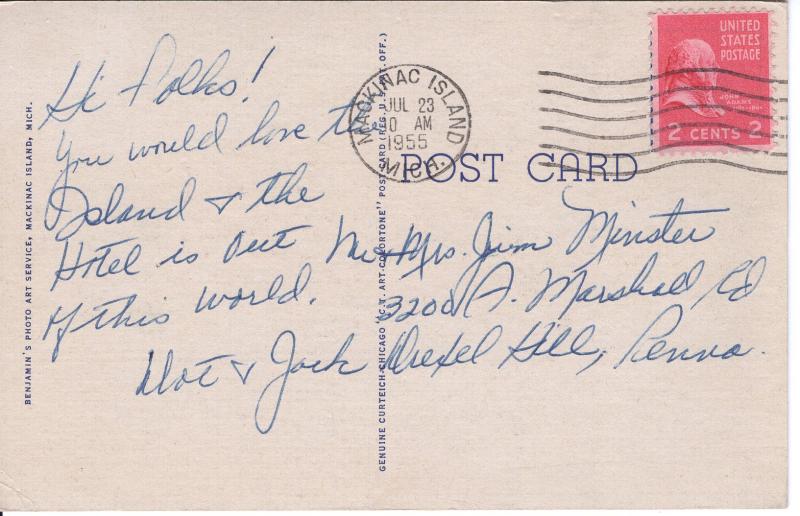 Hi Folks!
You would love the
Island & the
Hotel is out
of this world.
Dot & Jack
BENJAMIN'S PHOTO ART SERVICE, MACKINAC ISLAND, MICH.
GENUINE CURTEICH-CHICAGO "C.T. ART-COLORTONE" POST CARD (REG. U. OFF.)
MACKINAC ISLAND
JUL 23
0 AM
1955
MICH.
UNITED
STATES
POSTAGE
JOHN
ADAMS
2 CENTS 2
POST CARD
Mr & Mrs. Jim Minster
3200 A. Marshall Rd
Drexel Hill, Penna.